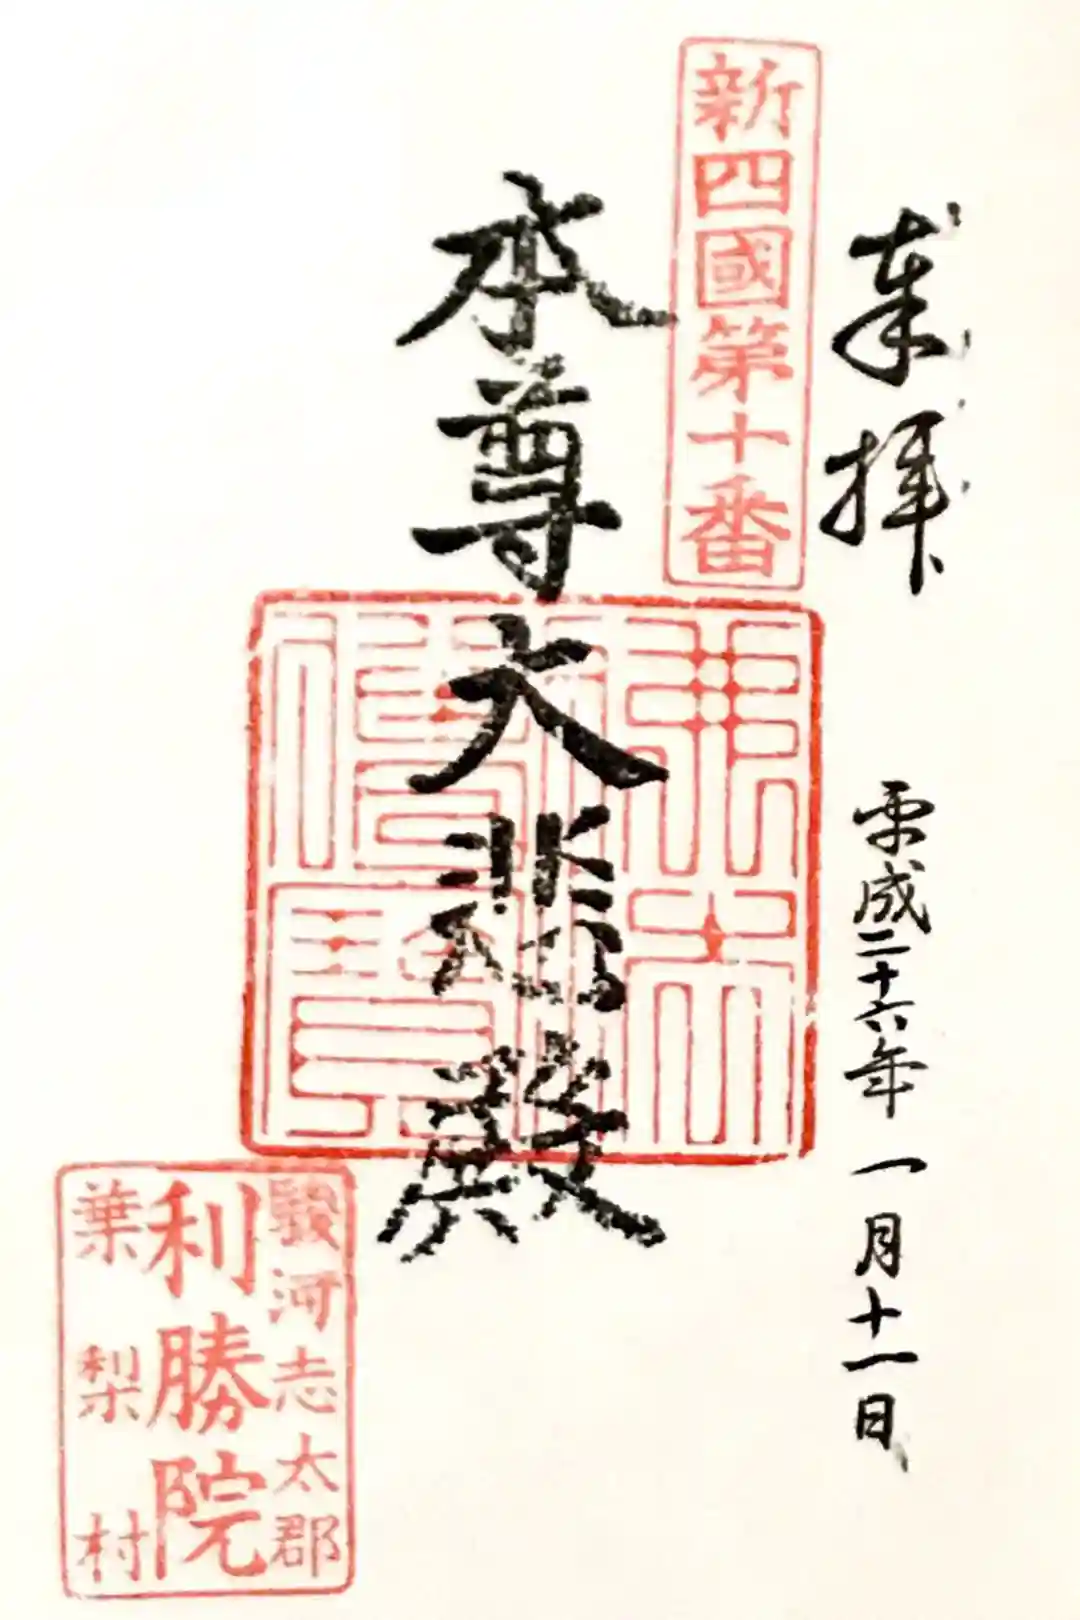 奉拝
平成二十六年一月十一日
新四國第十番
本尊大悲殿
佛法僧寳
駿河志太郡
利勝院
葉梨村